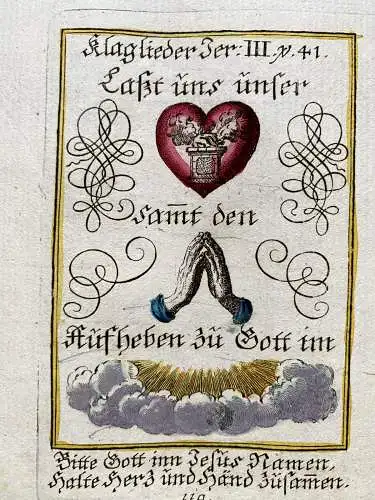 Klaglieder Jer: III. v. 41.
Laßt uns unser
samt den
Aufheben zu Gott im
Bitte Gott inn Jesus Namen,
Halte Herz und Händ zusamen.
119.